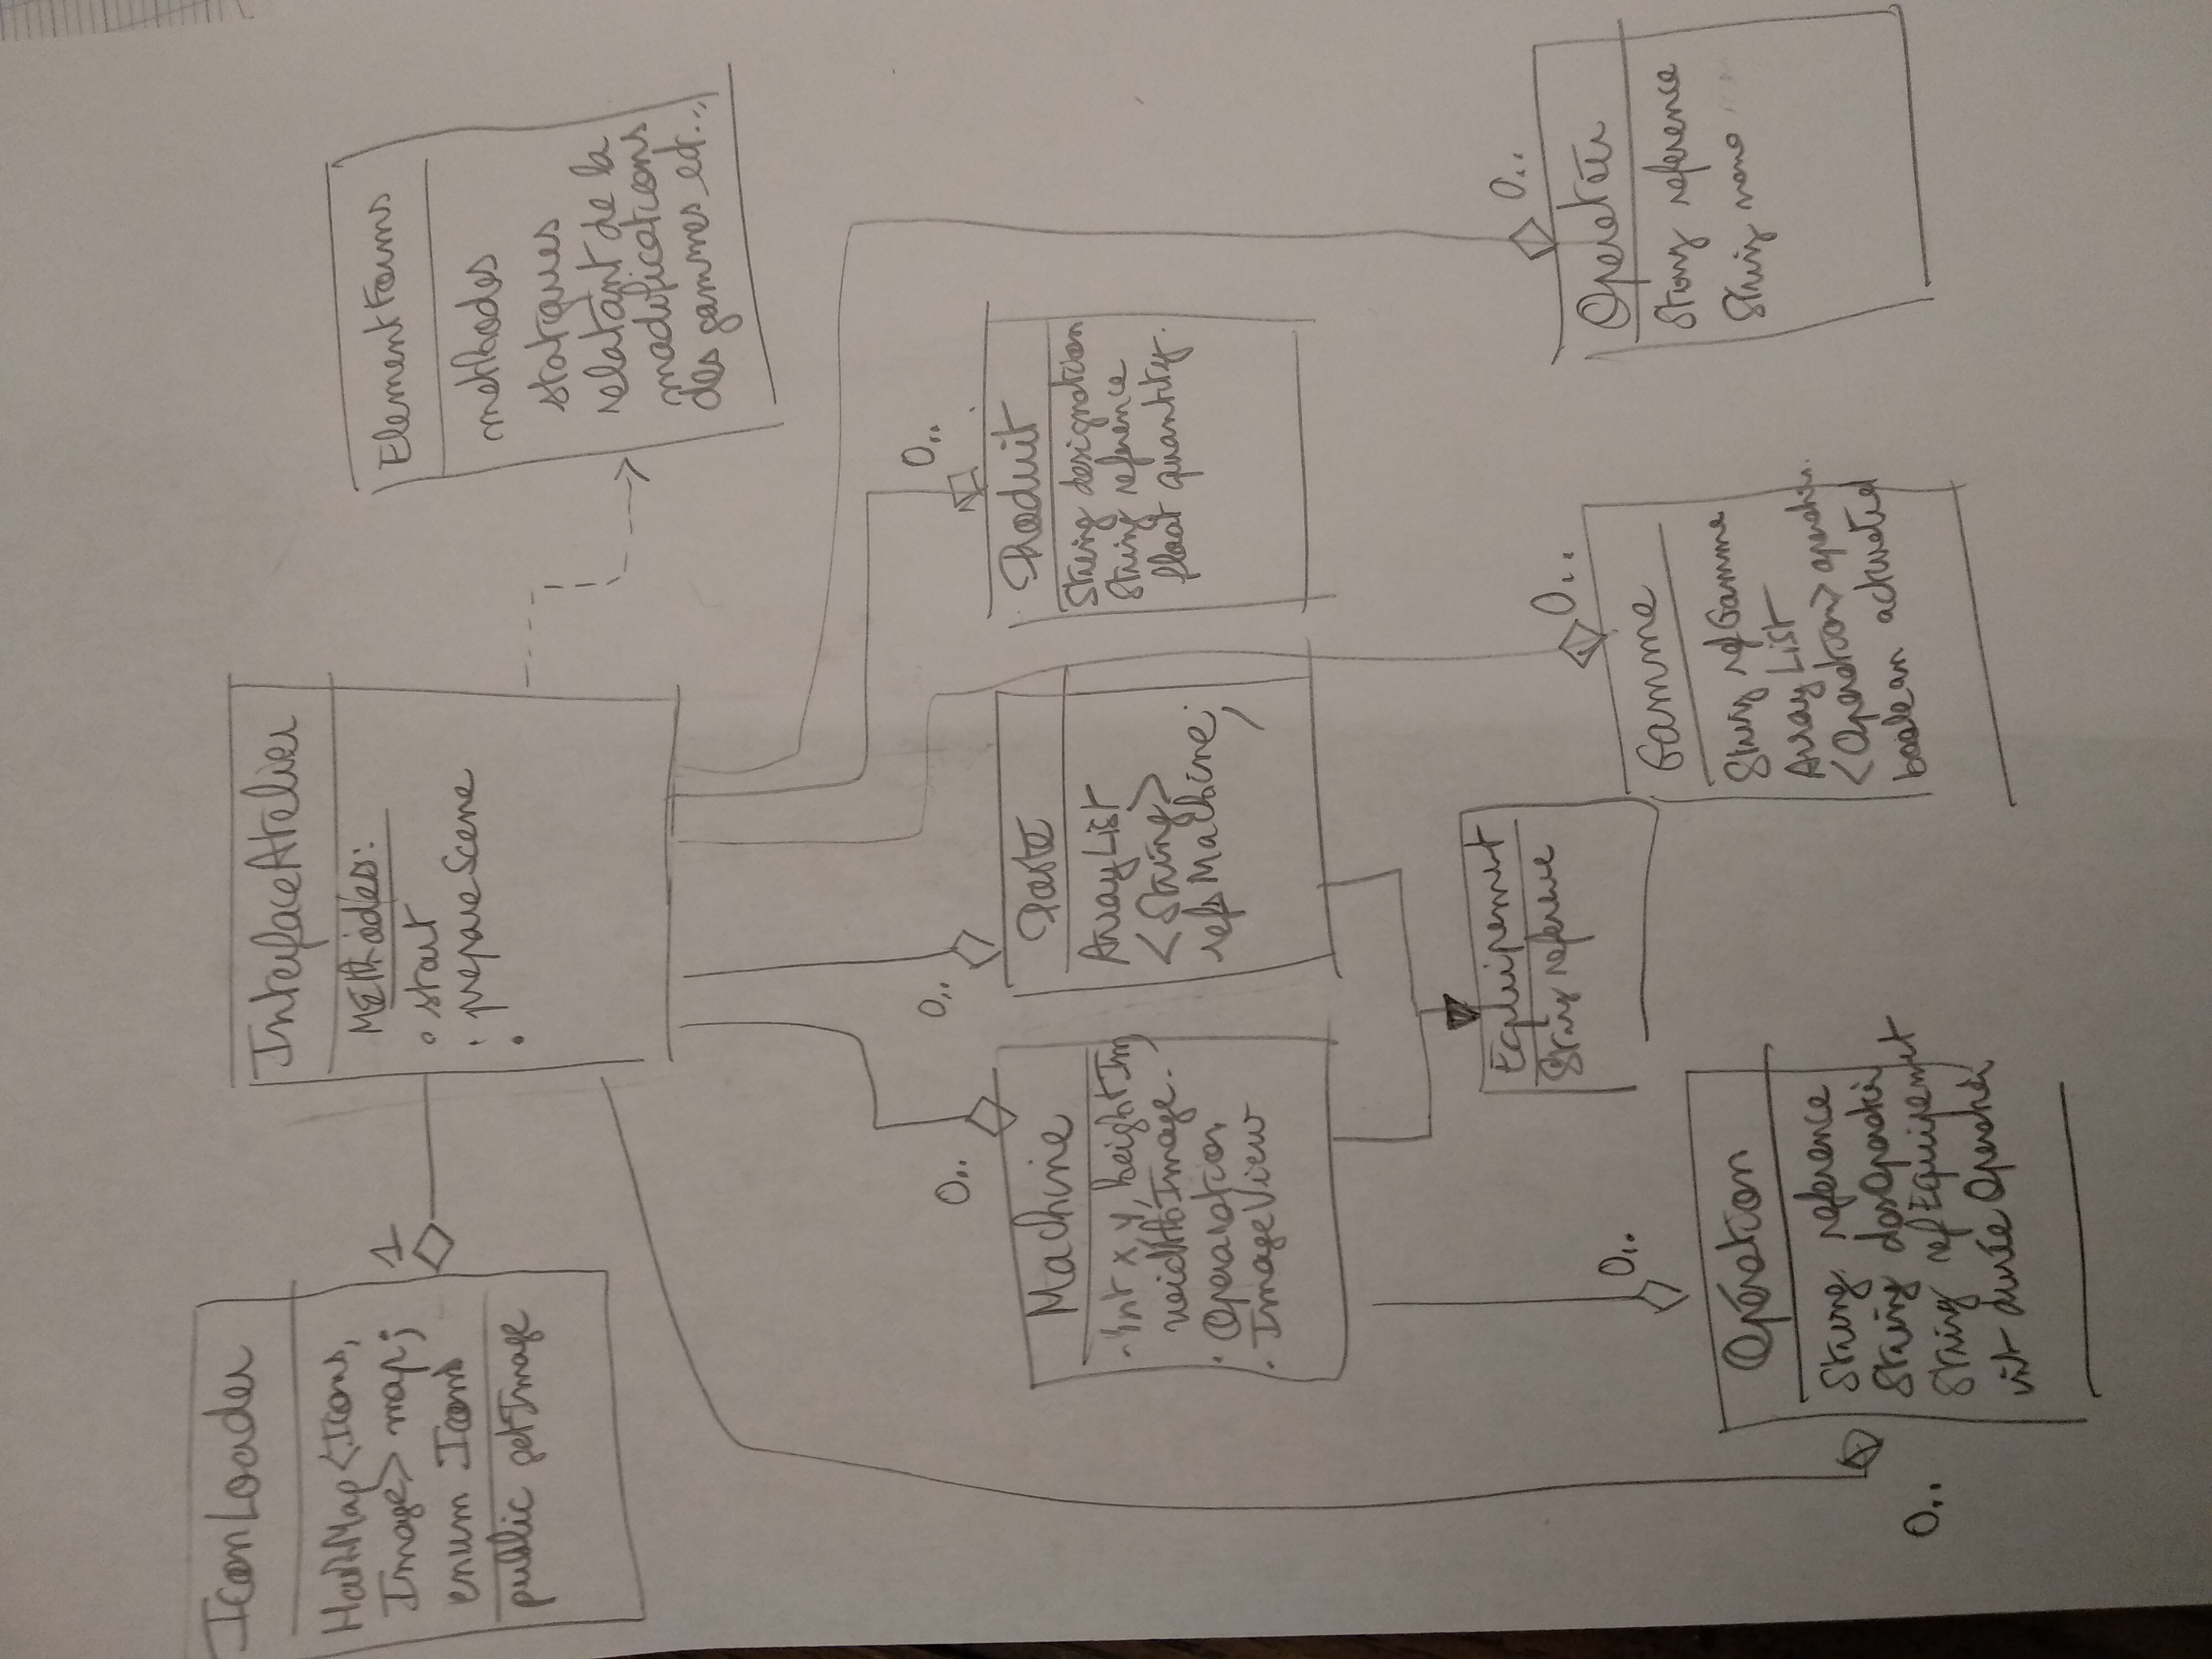 IconLoader
HashMap<Icons,
Image> map;
enum Icons
public getImage
1
InterfaceAtelier
Méthodes:
• start
• prepareScene
•
ElementForms
methodes
statques
relatant de la
modifications
des gammes ect...
0..
Machine
- int x, y, heightIm
widthImage.
• Operaration
• ImageView
0..
Poste
ArrayList
<String>
refsMachine;
0..
Produit
String designation
String reference
float quantity.
Equipement
String reference
0..
0..
Opération
String reference
String desOperation
String refEquipement
int duréeOperation
0..
Gamme
String refGamme
ArrayList
<Operation> operations.
boolean activated
0..
Operateur
String reference
String nome